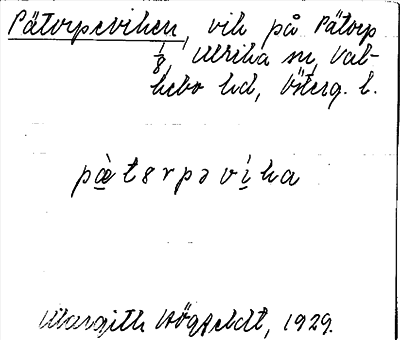 Pätorpeviken, vik på Pätorp
1/8, Ulrika sn, Val-
kebo hd, Österg. l.
pä̀tɞrpəvìka
Margith Högfeldt, 1929.